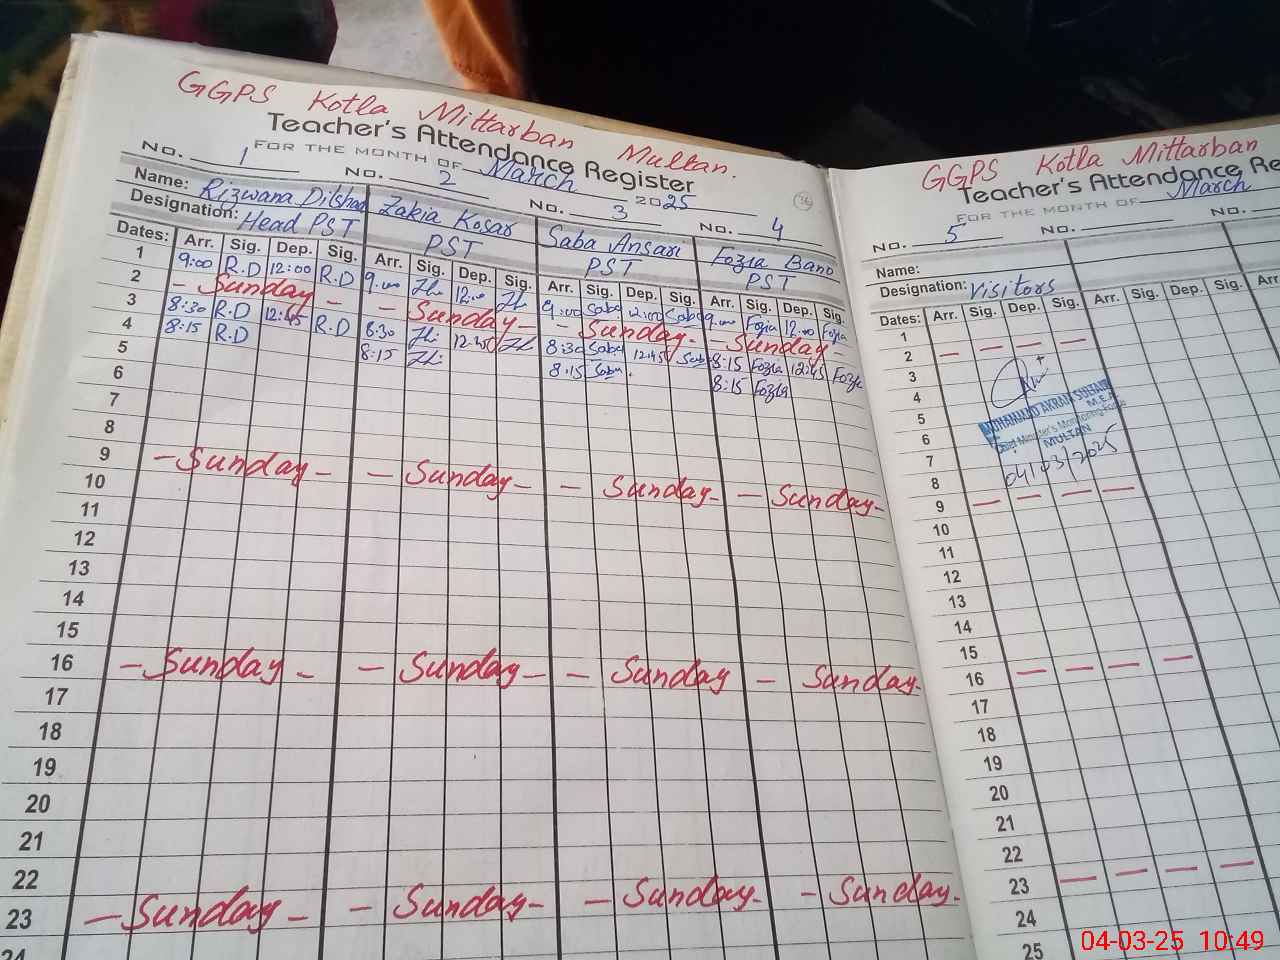 GGPS Kotla Mittarban Multan.
Teacher's Attendance Register
FOR THE MONTH OF March 2025
No. 1 No. 2 No. 3 No. 4
Name: Rizwana Dilshad Zakia Kosar Saba Ansari Fozia Bano
Designation: Head PST PST PST PST
Dates: Arr. Sig. Dep. Sig. Arr. Sig. Dep. Sig. Arr. Sig. Dep. Sig. Arr. Sig. Dep. Sig.
1 9:00 R.D 12:00 R.D 9.00 12.00 9:00 Saba 12:00 Saba 9.00 Fozia 12.00 Fozia
2 - Sunday - - Sunday - - Sunday - - Sunday -
3 8:30 R.D 12:45 R.D 8:30 12:45 8:30 Saba 12:45 Saba 8:15 Fozia 12:45 Fozia
4 8:15 R.D 8:15 8:15 Saba. 8:15 Fozia
5
6
7
8
9 - Sunday - - Sunday - - Sunday - - Sunday -
10
11
12
13
14
15
16 - Sunday - - Sunday - - Sunday - Sunday.
17
18
19
20
21
22
23 - Sunday - - Sunday - - Sunday - - Sunday.
24
GGPS Kotla Mittarban
Teacher's Attendance Re
FOR THE MONTH OF March
No. 5 No.
Name:
Designation: Visitors
Dates: Arr. Sig. Dep. Sig. Arr. Sig. Dep. Sig. Arr
1
2 - - - -
3
4
5
6
7
8
MUHAMMAD AKRAM SULTAN
M.E.A
Chief Minister's Monitoring Force
MULTAN
04/03/2025
9 - - - -
10
11
12
13
14
15
16 - - - -
17
18
19
20
21
22
23 - - - -
24
25
04-03-25 10:49